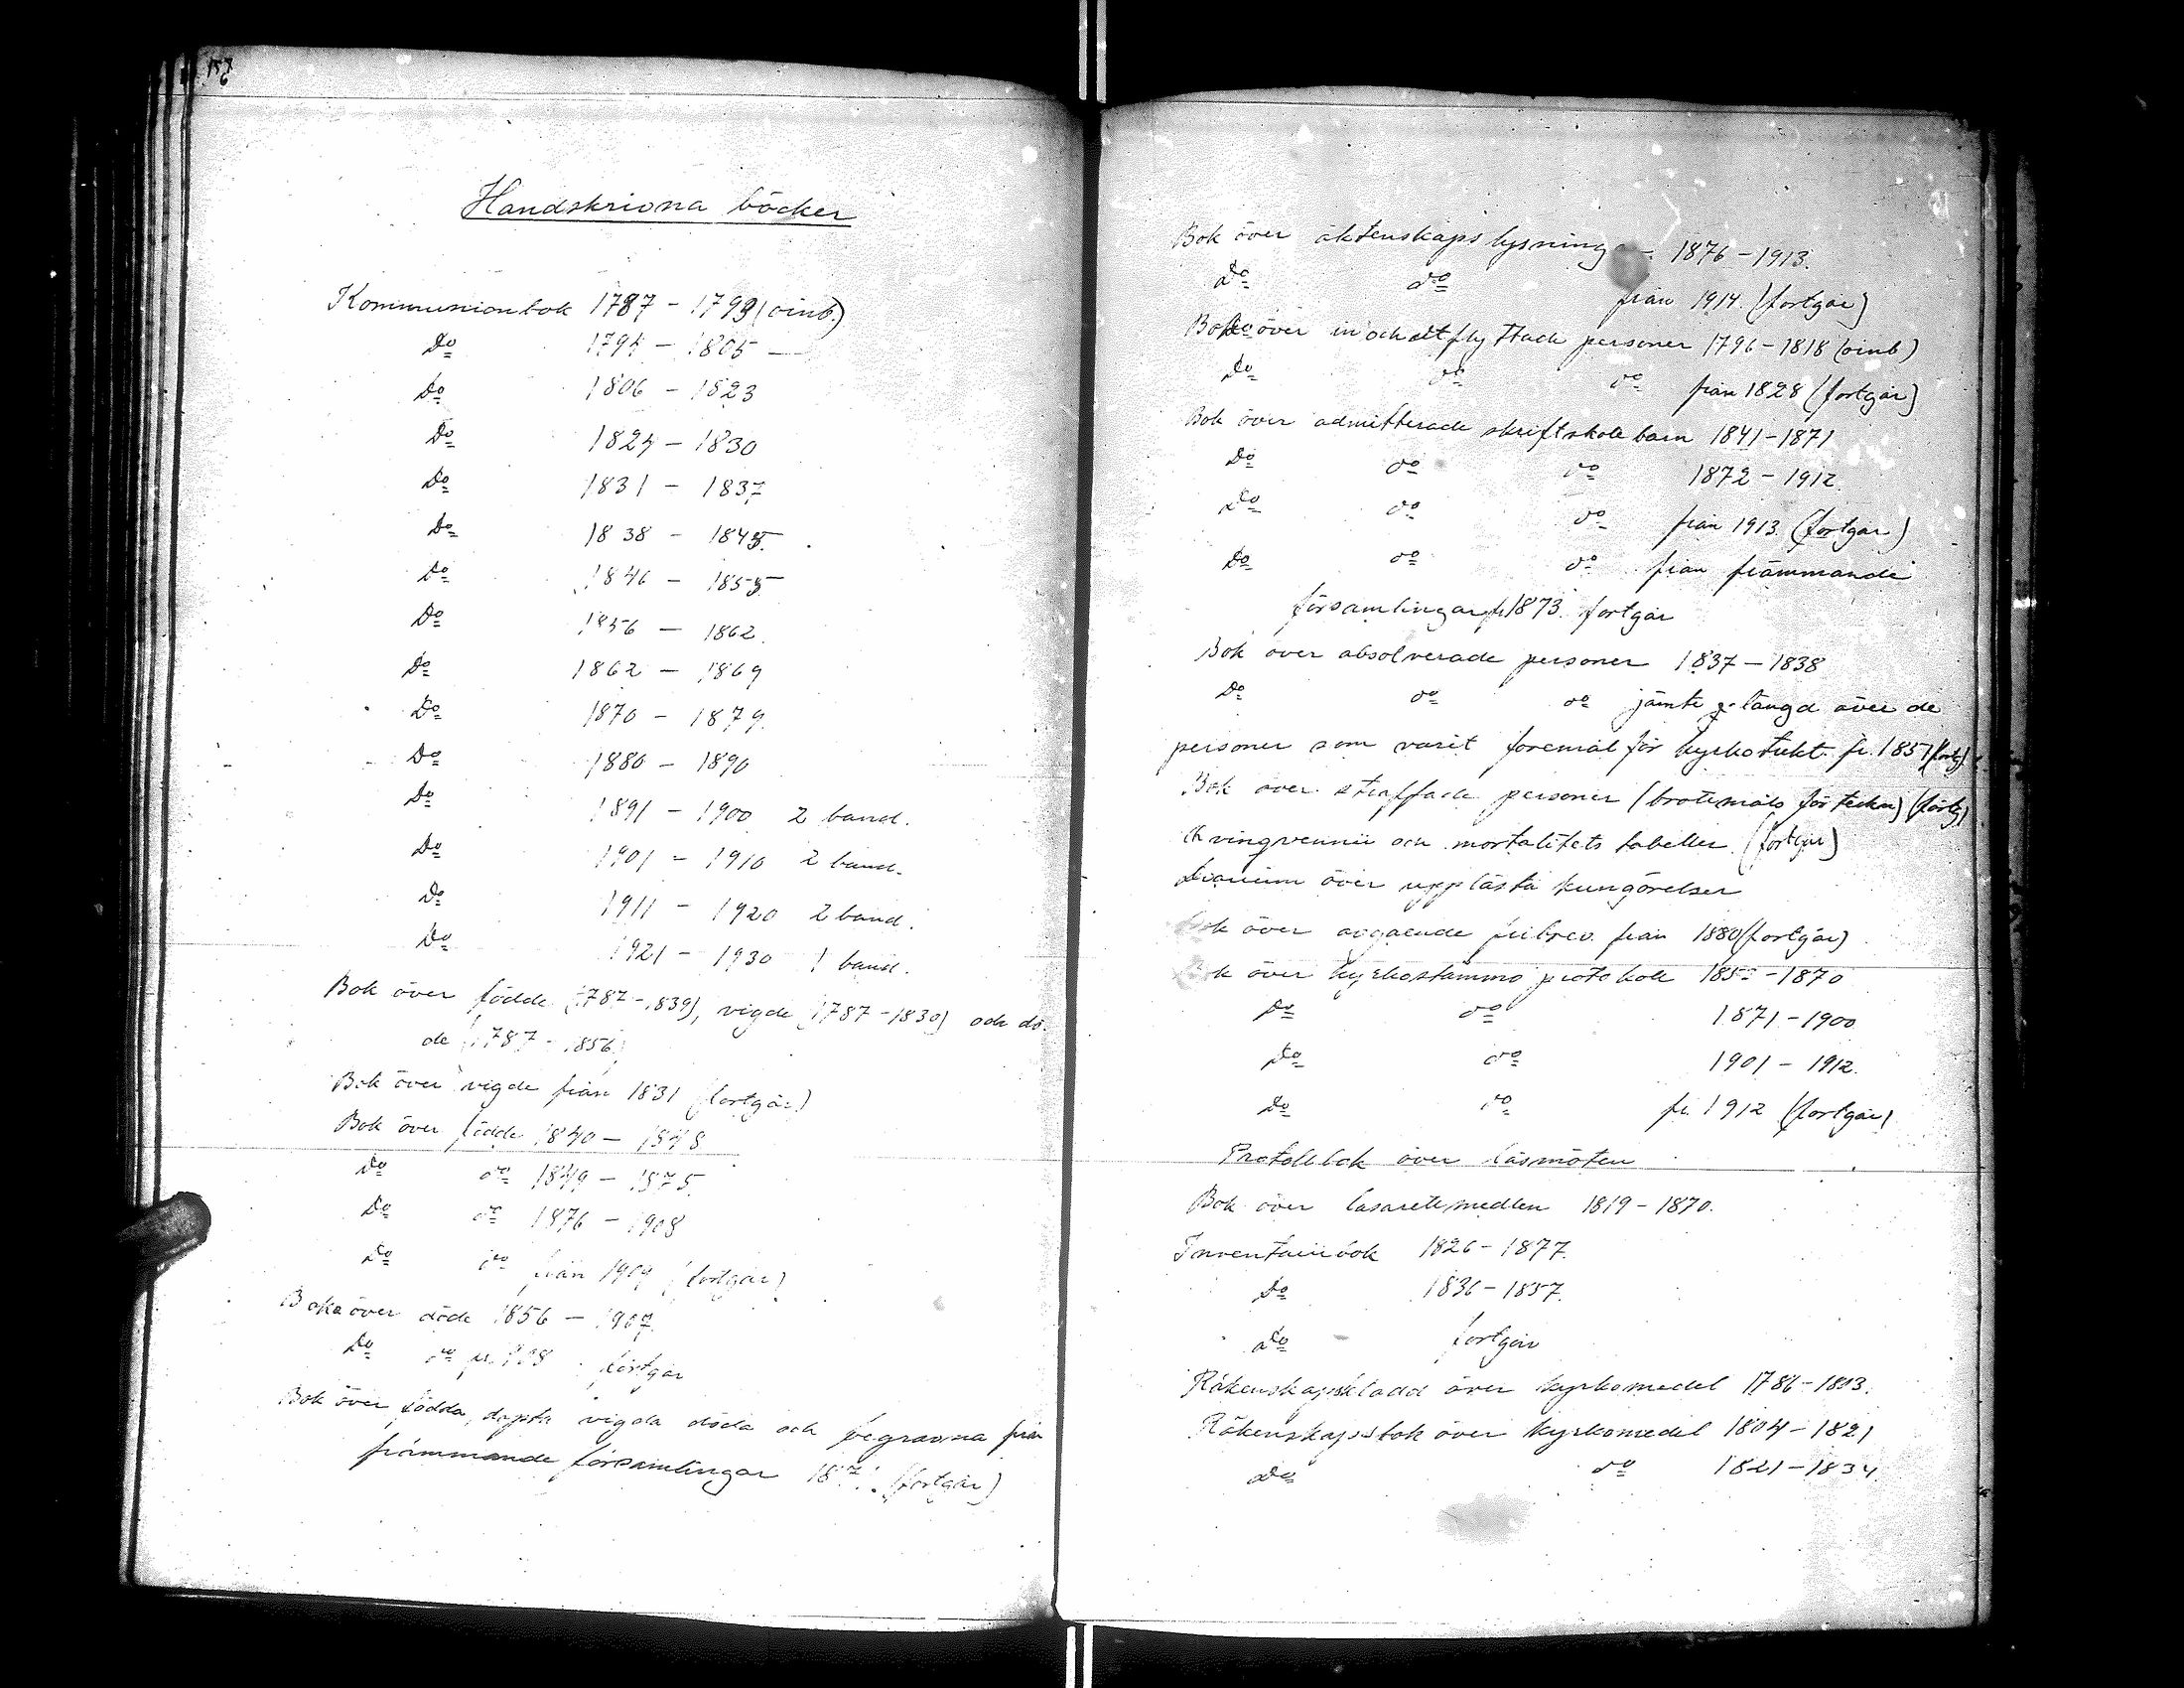 Handskrivna böcker
Kommunionbok 1787 - 1793 (oinb.)
Do 1794 - 1805 —
Do 1806 - 1823
Do 1824 - 1830
Do 1831 - 1837
Do 1838 - 1845.
Do 1846 - 1855
Do 1856 - 1862.
Do 1862 - 1869
Do 1870 - 1879.
Do 1880 - 1890
Do 1891 - 1900 2 band.
Do 1901 - 1910 2 band.
Do 1911 - 1920 2 band.
Do 1921 - 1930 1 band.
Bok över födde (1787-1839), vigde (1787-1830) och dö-
de (1787-1856)
Bok över vigde från 1831 (fortgår)
Bok över födde 1840 - 1848
Do do 1849 - 1875.
Do do 1876 - 1908
Do do från 1909 (fortgår)
Bok över döde 1856 - 1907.
Do do fr. 1908 fortgår
Bok över födda, döpta vigda döda och begravna från
främmande församlingar (fortgår)
Bok över äktenskapslysningar 1876 - 1913.
Do do från 1914 (fortgår)
Bok över in och utflyttade personer 1796-1818 (oinb)
Do do do från 1828 (fortgår)
Bok över admitterade skriftskolebarn 1841-1871
Do do do 1872 - 1912.
Do do do från 1913 (fortgår)
Do do do från främmande
församlingar fr 1873. fortgår
Bok över absolverade personer 1837 - 1838
Do do do jämte längd över de
personer som varit föremål för kyrkotukt fr. 1851 (fortg)
Bok över straffade personer (brottmåls förteckn) (fortg)
qvinqvennii och mortalitets tabeller (fortgår)
Diarium över upplästa kungörelser
Bok över avgående fribrev från 1880 (fortgår)
Bok över kyrkostämmo protokoll -1870
Do do 1871-1900
Do do 1901 - 1912.
Do do fr. 1912 (fortgår)
Protollbok över läsmöten
Bok över lasarettsmedlen 1819-1870.
Inventariibok 1826-1877.
Do 1836-1857.
Do fortgår
Räkenskapskladd över kyrkomedel 1786-1803.
Räkenskapsbok över kyrkomedel 1804-1821
Do do 1821-1834.